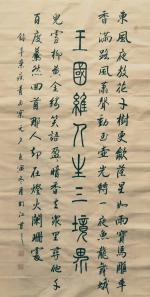 東風夜放花千樹更吹隕星如雨寶馬雕車
香滿路鳳簫聲動玉壺光轉一夜魚龍舞蛾
王國維人生三境界
兒雪柳黃金縷笑語盈盈暗香去眾里尋他千
百度驀然回首那人卻在燈火闌珊處
錄辛棄疾青玉案元夕